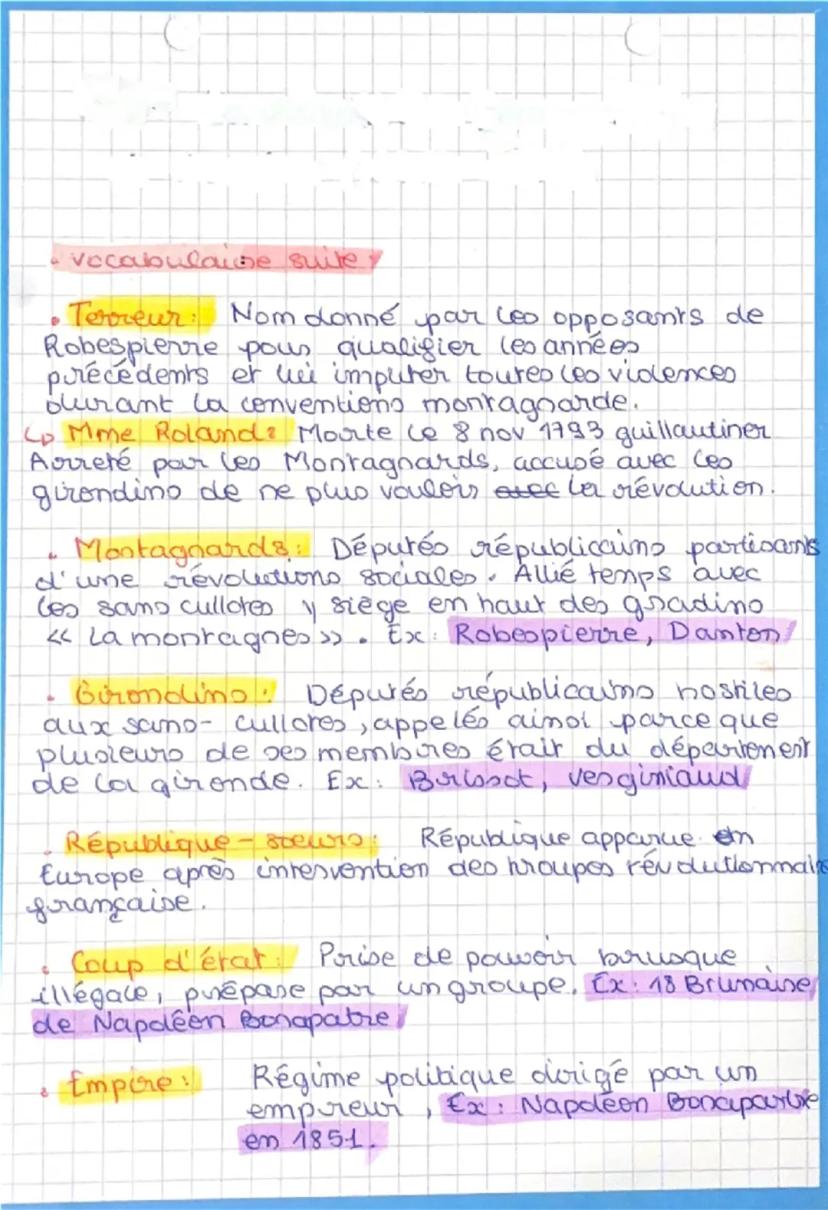 • vocabulaire suite
• Terreur : Nom donné par les opposants de
Robespierre pour qualifier les années
précédents et lui imputer toutes les violences
durant la conventions montagnarde.
↳ Mme Roland : Morte le 8 nov 1793 guillautiner
Arreté par les Montagnards, accusé avec les
girondins de ne plus vouloir la révolution.
• Montagnards : Députés républicains partisans
d'une révolutions sociales. Allié temps avec
les sans cullotes y siège en haut des gradins
« La montagnes ». Ex : Robespierre, Danton
• Girondins : Députés républicains hostiles
aux sans-cullotes, appelés ainsi parce que
plusieurs de ses membres était du département
de la gironde. Ex : Brissot, verginiaud
• République-soeurs : République apparue en
Europe après intervention des troupes révolutionnai
française.
• Coup d'état : Prise de pouvoir brusque
illégale, prépare par un groupe. Ex : 18 Brumaire
de Napoléon Bonapatre
• Empire : Régime politique dirigé par un
empreur, Ex : Napoléon Bonaparte
en 1851.